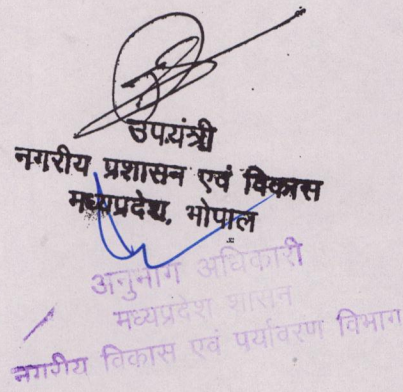 उपयंत्री
नगरीय प्रशासन एवं विकास
मध्यप्रदेश, भोपाल
अनुभाग अधिकारी
मध्यप्रदेश शासन
नगरीय विकास एवं पर्यावरण विभाग